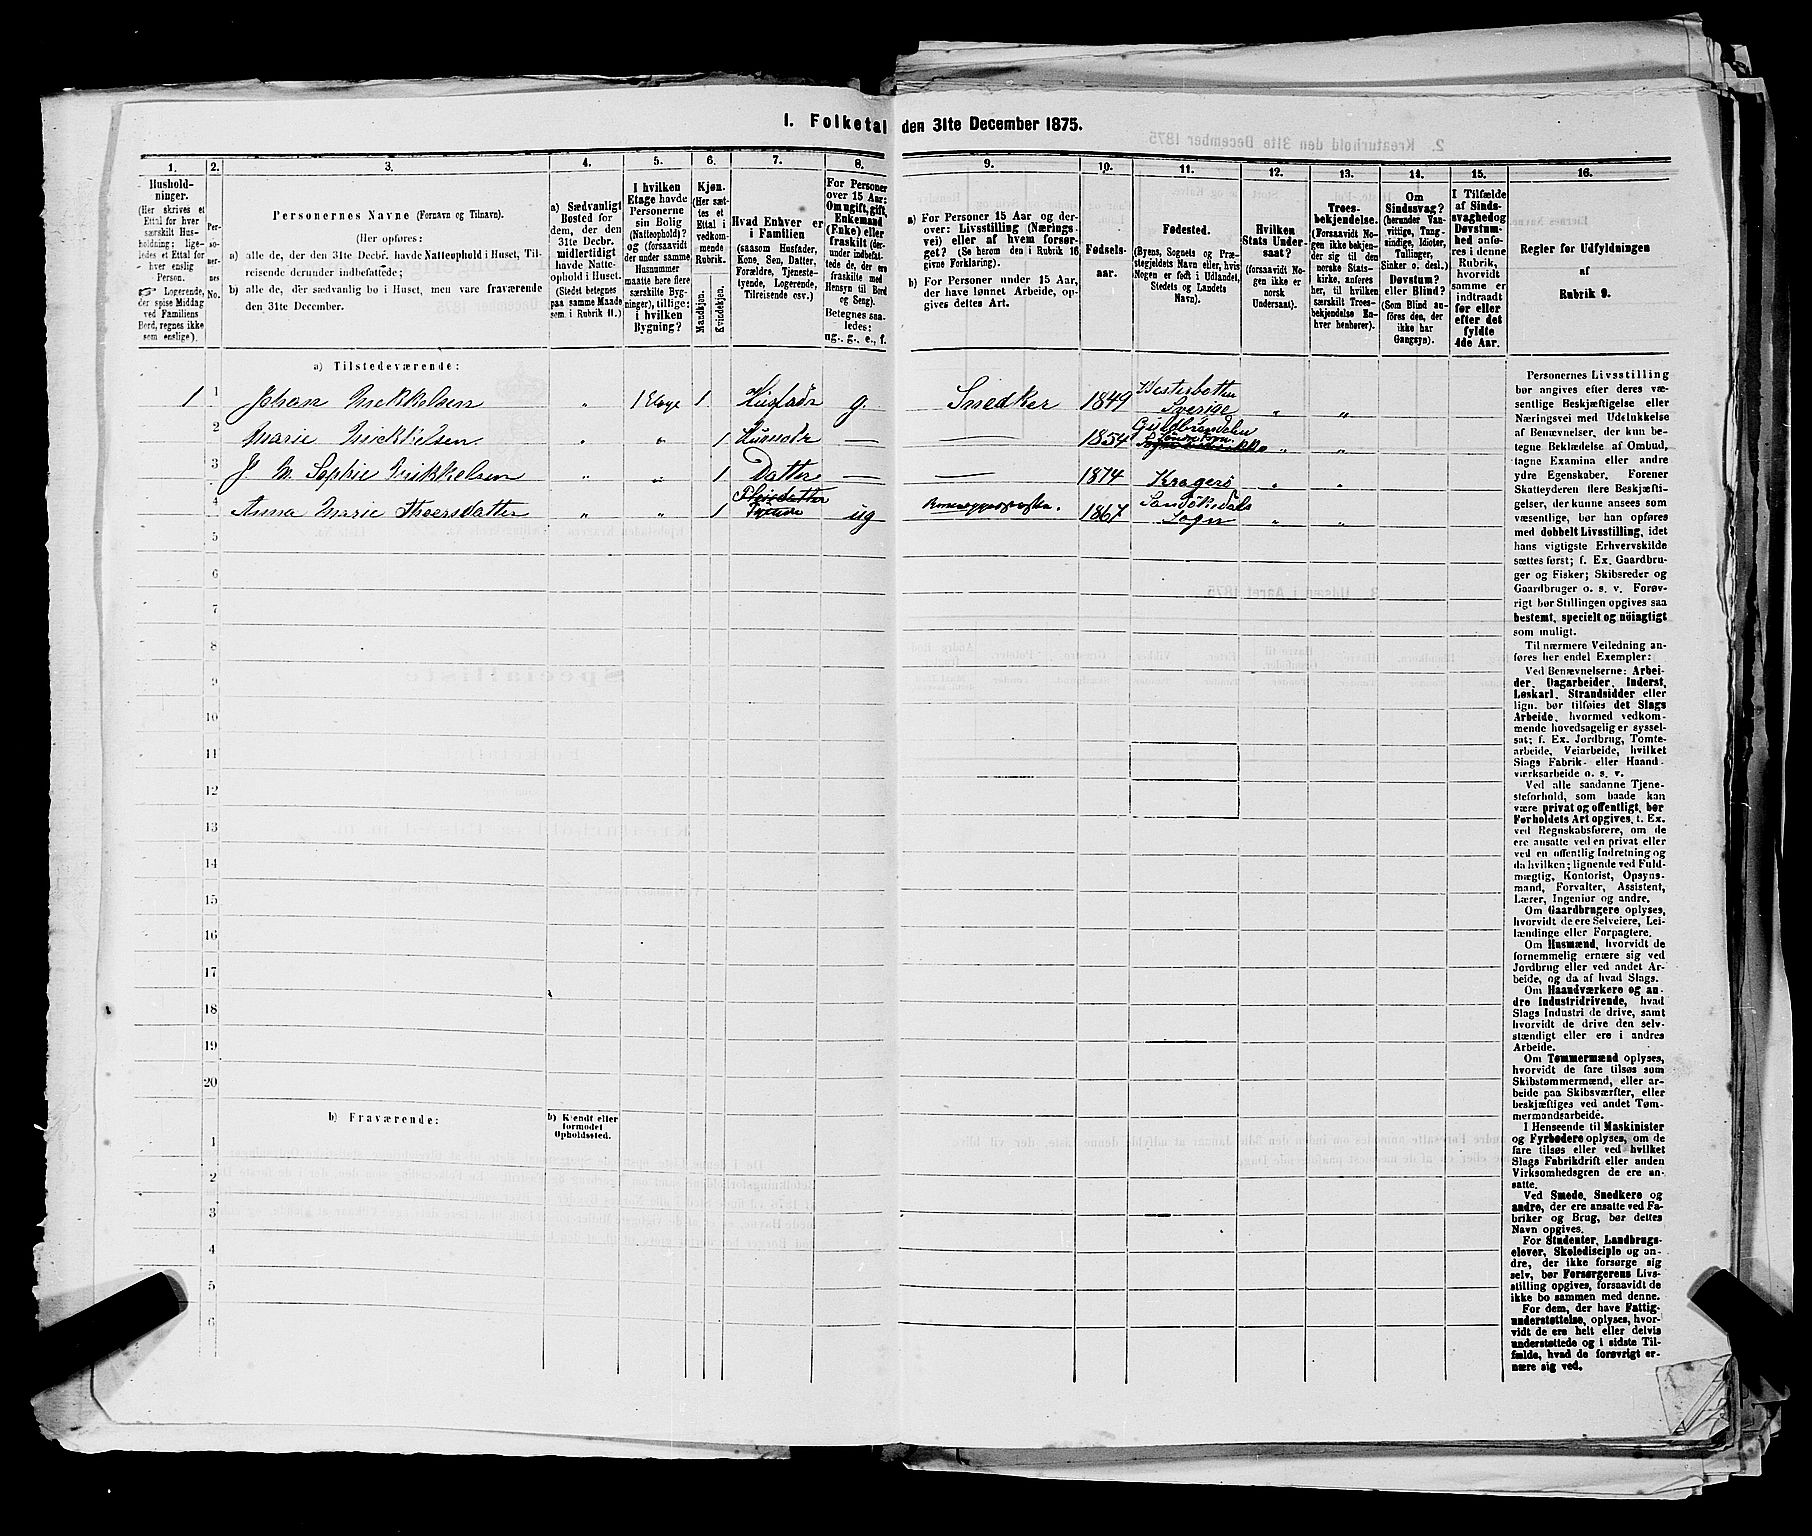 I. Folketal den 31te December 1875.
1. 2. 3. 4. 5. 6. 7. 8. 9. 10. 11. 12. 13. 14. 15. 16.
Hushold-
ninger.
(Her skrives et
Ettal for hver
særskilt Hus-
holdning; lige-
ledes et Ettal for
hver enslig
Person.
Logerende,
der spise Middag
ved Familiens
Bord, regnes ikke
som enslige).
Per-
so-
ner-
nes
No.
Personernes Navne (Fornavn og Tilnavn).
(Her opføres:
a) alle de, der den 31te Decbr. havde Natteophold i Huset, Til-
reisende derunder indbefattede;
b) alle de, der sædvanlig bo i Huset, men vare fraværende
den 31te December.
a) Sædvanligt
Bosted for
dem, der den
31te Decbr.
midlertidigt
havde Natte-
ophold i Huset.
(Stedet betegnes
paa samme Maade
som i Rubrik 11.)
I hvilken
Etage havde
Personerne
sin Bolig
(Natteophold)?
og (forsaavidt
der under samme
Husnummer
maatte høre flere
særskilte Byg-
ninger), tillige:
i hvilken
Bygning?
Kjøn.
(Her sæt-
tes et
Ettal i
vedkom-
mende
Rubrik.
Mandkjøn.
Kvindekjøn.
Hvad Enhver er
i Familien
(saasom Husfader,
Kone, Søn, Datter,
Forældre, Tjeneste-
tyende, Logerende,
Tilreisende osv.)
For Personer
over 15 Aar:
Om ugift, gift,
Enkemand
(Enke) eller
fraskilt (der-
under indbefat-
tede de, der ere
fraskilte med
Hensyn til Bord
og Seng).
Betegnes saa-
ledes:
ug., g., e., f.
a) For Personer 15 Aar og der-
over: Livsstilling (Nærings-
vei) eller af hvem forsør-
get? (Se herom den i Rubrik 16
givne Forklaring).
b) For Personer under 15 Aar,
der have lønnet Arbeide, op-
gives dettes Art.
Fødsels-
aar.
Fødested.
(Byens, Sognets og Præ-
stegjeldets Navn eller, hvis
Nogen er født i Udlandet,
Stedets og Landets
Navn).
Hvilken
Stats Under-
saat?
(forsaavidt No-
gen ikke er
norsk
Undersaat).
Troes-
bekjendelse.
(Forsaavidt No-
gen ikke bekjen-
der sig til den
norske Stats-
kirke, anføres
her, til hvilken
særskilt Troes-
bekjendelse En-
hver henhører).
Om
Sindssvag?
(herunder Van-
vittige, Tung-
sindige, Idioter,
Tullinger,
Sinker o. desl.)
Døvstum?
eller Blind?
(Som Blind an-
føres den, der
ikke har
Gangsyn).
I Tilfælde
af Sinds-
svaghed og
Døvstum-
hed anfø-
res i denne
Rubrik,
hvorvidt
samme er
indtraadt
før eller
efter det
fyldte
4de Aar.
Regler for Udfyldningen
af
Rubrik 9.
a) Tilstedeværende:
1 1 Johan Mikkelsen " 1 Etage 1 Husfader g. Snedker 1849 Westerbotten Sverige " "
2 Marie Mickkelsen " " 1 Husmoder — — 1854 Gulbrandsdalen " "
3 J. M. Sophie Mikkelsen " " 1 Datter — — 1874 Kragerø " "
4 Anna Marie Thoersdatter " " 1 Pleiedatter ug 1867 Sandøkedals Sogn " "
5
6
7
8
9
10
11
12
13
14
15
16
17
18
19
20
b) Fraværende:
b) Kjendt eller
formodet
Opholdssted.
1
2
3
4
5
6
Personernes Livsstilling
bør angives efter deres væ-
sentlige Beskjæftigelse eller
Næringsvei med Udelukkelse
af Benævnelser, der kun be-
tegne Beklædelse af Ombud,
tagne Examina eller andre
ydre Egenskaber. Forener
Skatteyderen flere Beskjæfti-
gelser, der kunne ansees som
væsentlige, bør han opføres
med dobbelt Livsstilling, idet
hans vigtigste Erhvervskilde
sættes først; f. Ex. Gaardbru-
ger og Fisker; Skibsreder og
Gaardbruger o. s. v. Forøv-
rigt bør Stillingen opgives saa
bestemt, specielt og nöiagtigt
som muligt.
Til nærmere Veiledning an-
føres her endel Exempler:
Ved Benævnelserne: Arbei-
der, Dagarbeider, Inderst,
Løskarl, Strandsidder eller
lign. bør tilføies det Slags
Arbeide, hvormed vedkom-
mende hovedsagelig er syssel-
sat; f. Ex. Jordbrug, Tomte-
arbeide, Veiarbeide, hvilket
Slags Fabrik- eller Haand-
værksarbeide o. s. v.
Ved alle saadanne Tjene-
steforhold, som baade kan
være privat og offentligt, bør
Forholdets Art opgives, t. Ex.
ved Regnskabsførere, om de
ere ansatte ved en privat eller
ved en offentlig Indretning og
da hvilken; lignende ved Fuld-
mægtig, Kontorist, Opsyns-
mand, Forvalter, Assistent,
Lærer, Ingeniør og andre.
Om Gaardbrugere oplyses,
hvorvidt de ere Selveiere, Lei-
lændinge eller Forpagtere.
Om Husmænd, hvorvidt de
fornemmelig ernære sig ved
Jordbrug eller ved andet Ar-
beide, og da af hvad Slags.
Om Haandværkere og an-
dre Industridrivende, hvad
Slags Industri de drive, samt
hvorvidt de drive den selv-
stændigt eller ere i andres
Arbeide.
Om Tømmermænd oplyses,
hvorvidt de fare tilsøs som
Skibstømmermænd, eller ar-
beide paa Skibsværfter, eller
beskjæftiges ved andet Tøm-
mermandsarbeide.
I Henseende til Maskinister
og Fyrbødere oplyses, om de
fare tilsøs eller ved hvilket
Slags Fabrikdrift eller anden
Virksomhedsgren de ere an-
satte.
Ved Smede, Snedkere og
andre, der ere ansatte ved Fa-
briker og Brug, bør dettes
Navn opgives.
For Studenter, Landbrugs-
elever, Skoledisciple og an-
dre, der ikke forsørge sig
selv, bør Forsørgerens Livs-
stilling opgives, forsaavidt de
ikke bo sammen med denne.
For dem, der have Fattig-
understøttelse, oplyses, hvor-
vidt de ere helt eller delvis
understøttede og i sidste Til-
fælde, hvad de forøvrigt er-
nære sig ved.